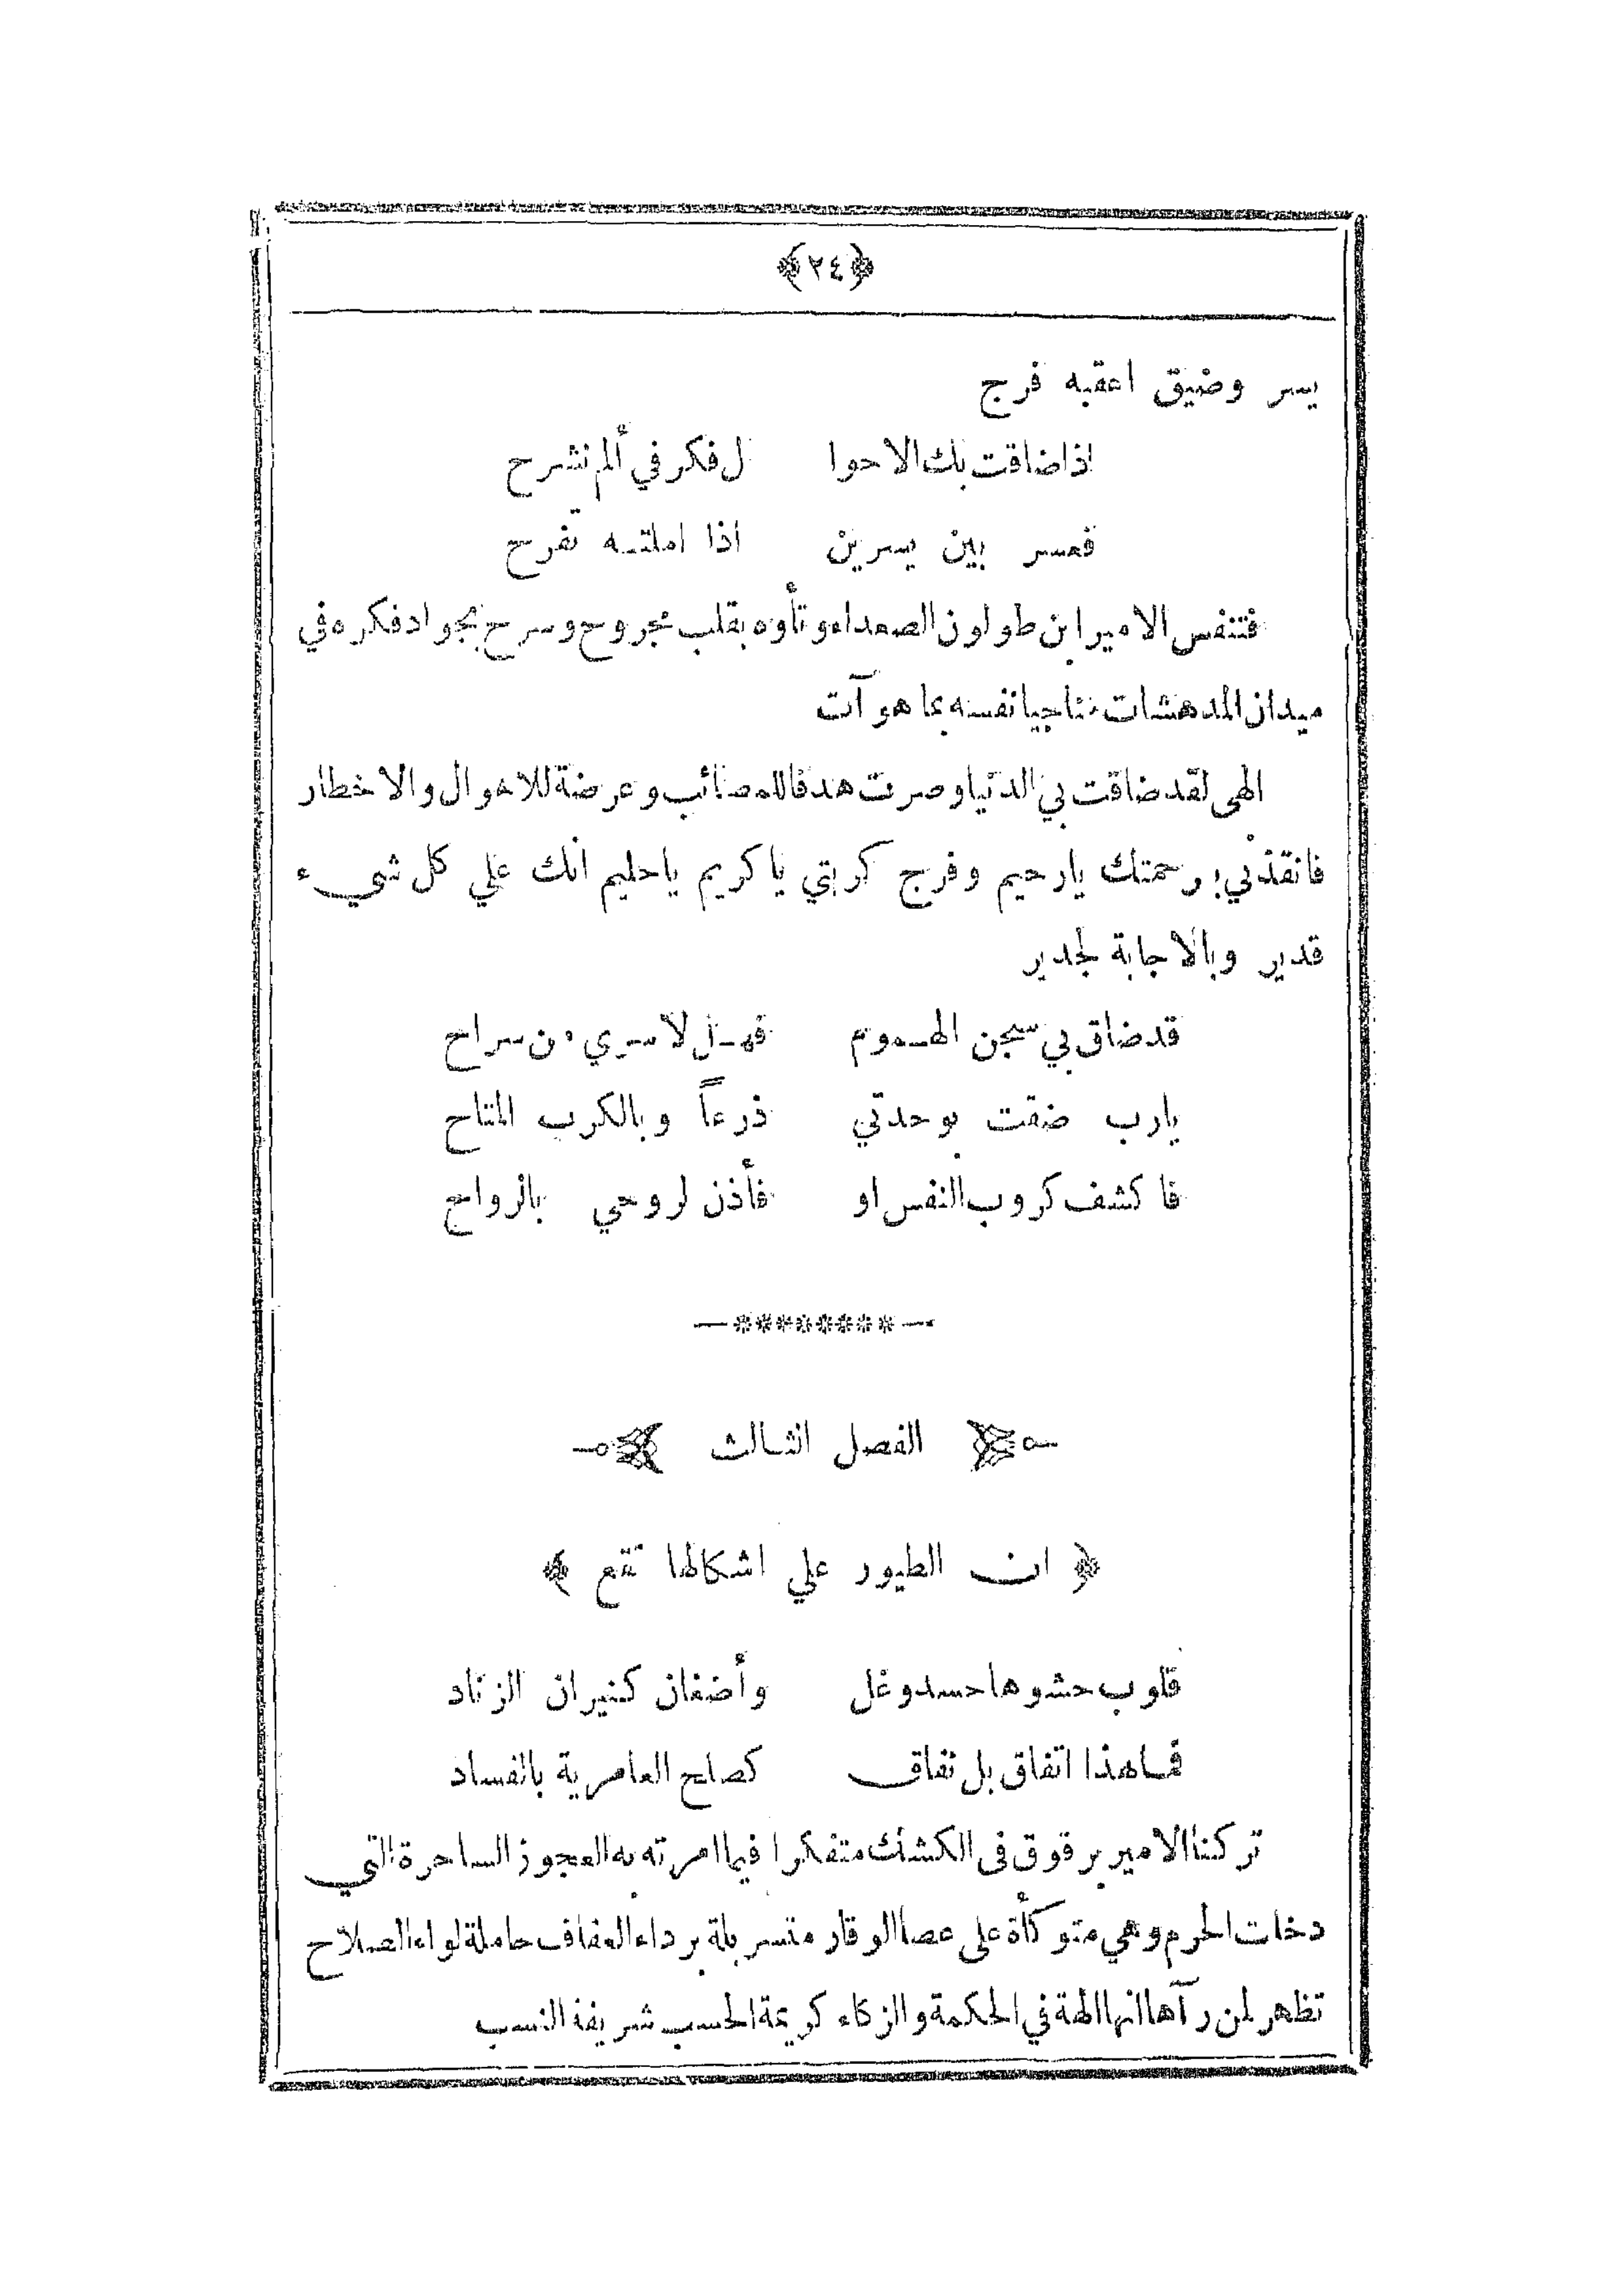 ﴿٢٤﴾
يسر وضيق اعقبه فرج
اذا ضاقت بك الاحوا ل فكر في ألم نشرح
فعسر بين يسرين اذا املتـه تفرح
فتنفس الامير ابن طولون الصعداء وتأوه بقلب مجروح وسرح بجواد فكره في
ميدان المدهشات مناجيا نفسه بما هو آت
الهي لقد ضاقت بي الدنيا وصرت هدفا للمصائب وعرضة للاهوال والاخطار
فانقذني برحمتك يارحيم وفرج كربتي يا كريم يا حليم انك علي كل شيء
قدير وبالاجابة لجدير
قد ضاق بي سجن الهـموم فهـل لاسري من سراح
يارب ضقت بوحدتي ذرعاً وبالكرب المتاح
فاكشف كروب النفس او فأذن لروحي بالرواح
الفصل الثالث
﴿ ان الطيور علي اشكالها تقع ﴾
قلوب حشوها حسد وغل وأضغان كنيران الزناد
فما هذا اتفاق بل نفاق كصلح العامرية بالفساد
تركنا الامير برقوق فى الكشك متفكرا فيما امرته به العجوز الساحرة التي
دخلت الحرم وهي متوكأة على عصا الوقار متسربلة برداء العفاف حاملة لواء الصلاح
تظهر لمن رآها انها الهة في الحكمة والزكاء كريمة الحسب شريفة النسب